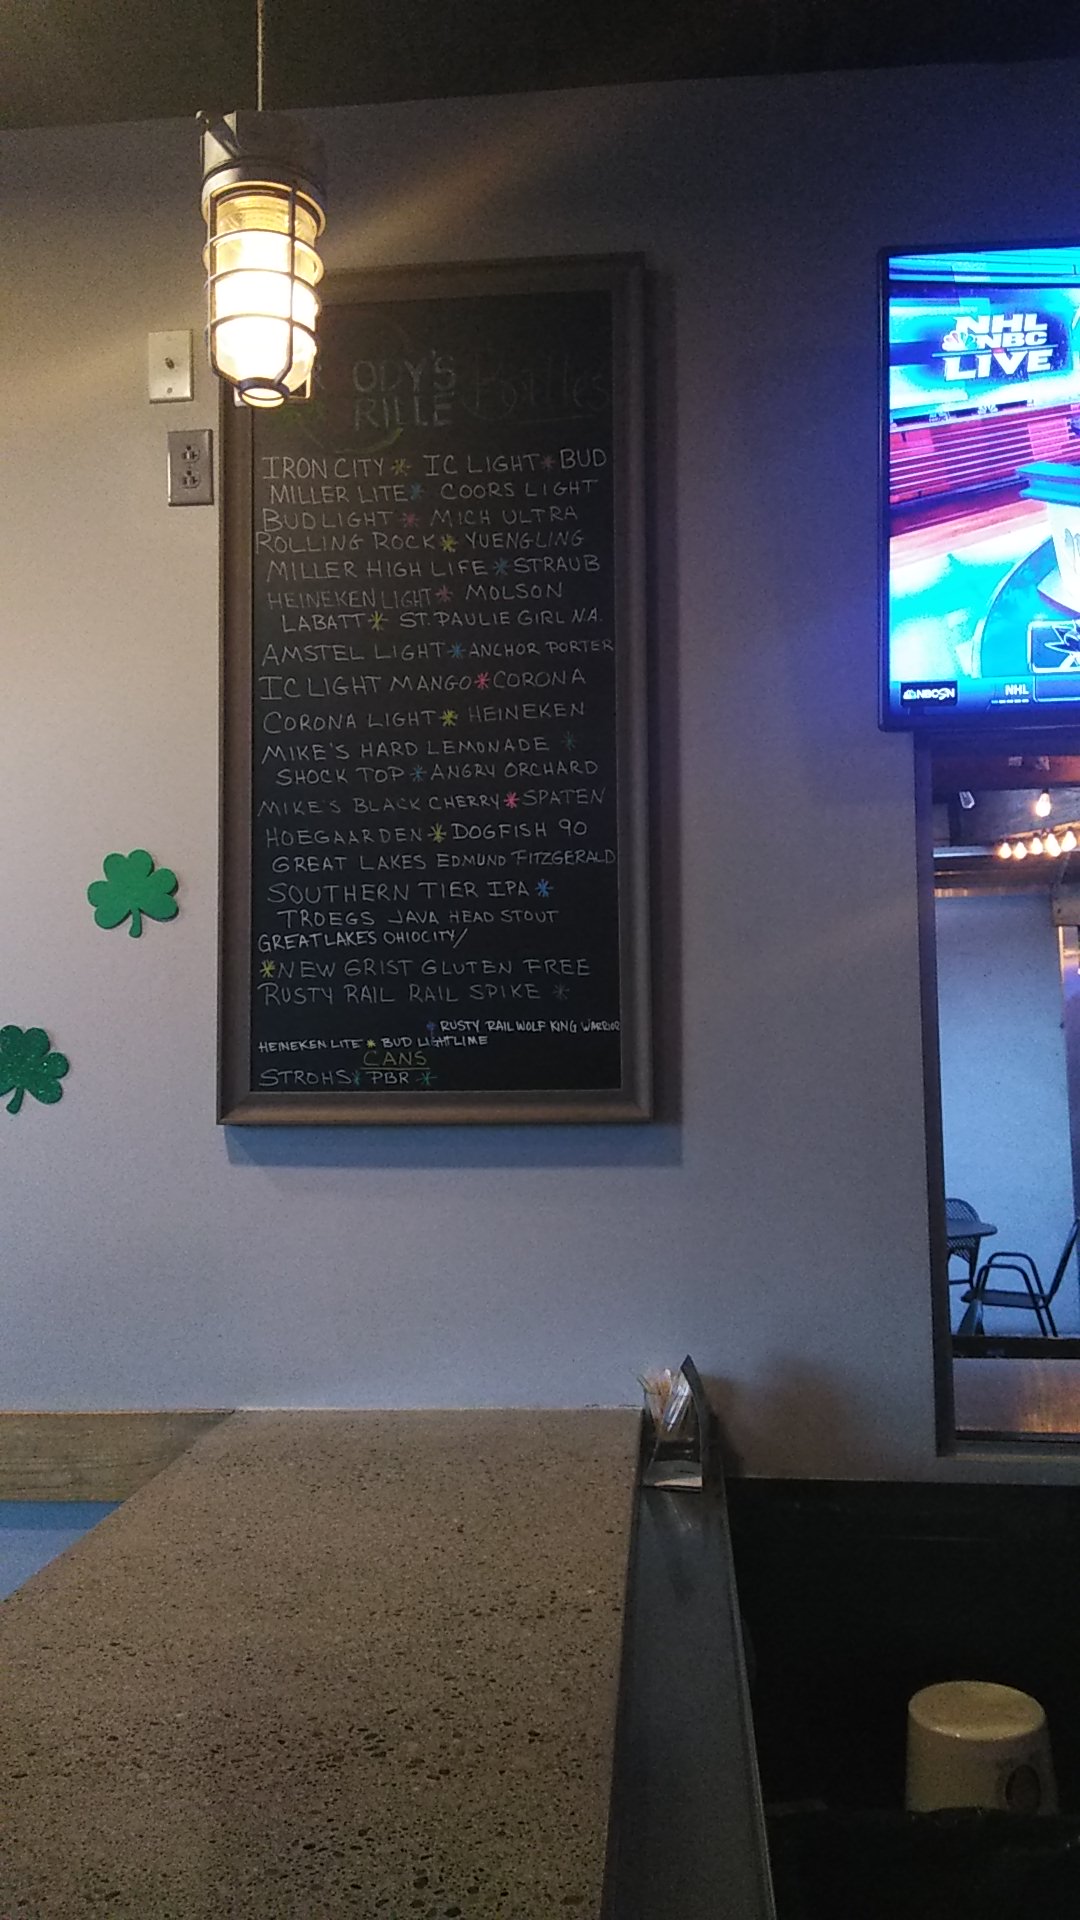 ODY'S Bottles
RILLE
IRON CITY * IC LIGHT * BUD
MILLER LITE * COORS LIGHT
BUD LIGHT * MICH ULTRA
ROLLING ROCK * YUENGLING
MILLER HIGH LIFE * STRAUB
HEINEKEN LIGHT * MOLSON
LABATT * ST. PAULIE GIRL N.A.
AMSTEL LIGHT * ANCHOR PORTER
IC LIGHT MANGO * CORONA
CORONA LIGHT * HEINEKEN
MIKE'S HARD LEMONADE *
SHOCK TOP * ANGRY ORCHARD
MIKE'S BLACK CHERRY * SPATEN
HOEGAARDEN * DOGFISH 90
GREAT LAKES EDMUND FITZGERALD
SOUTHERN TIER IPA *
TROEGS JAVA HEAD STOUT
GREAT LAKES OHIOCITY/
* NEW GRIST GLUTEN FREE
RUSTY RAIL RAIL SPIKE *
* RUSTY RAIL WOLF KING WARRIOR
HEINEKEN LITE * BUD LIGHTLIME
CANS
STROHS * PBR *
NHL
NBC
LIVE
NBCSN
NHL